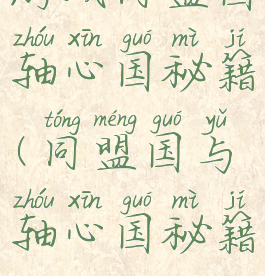 zhóu xīn guó mì jí
轴心国秘籍
tóng méng guó yǔ
(同盟国与
zhóu xīn guó mì jí
轴心国秘籍